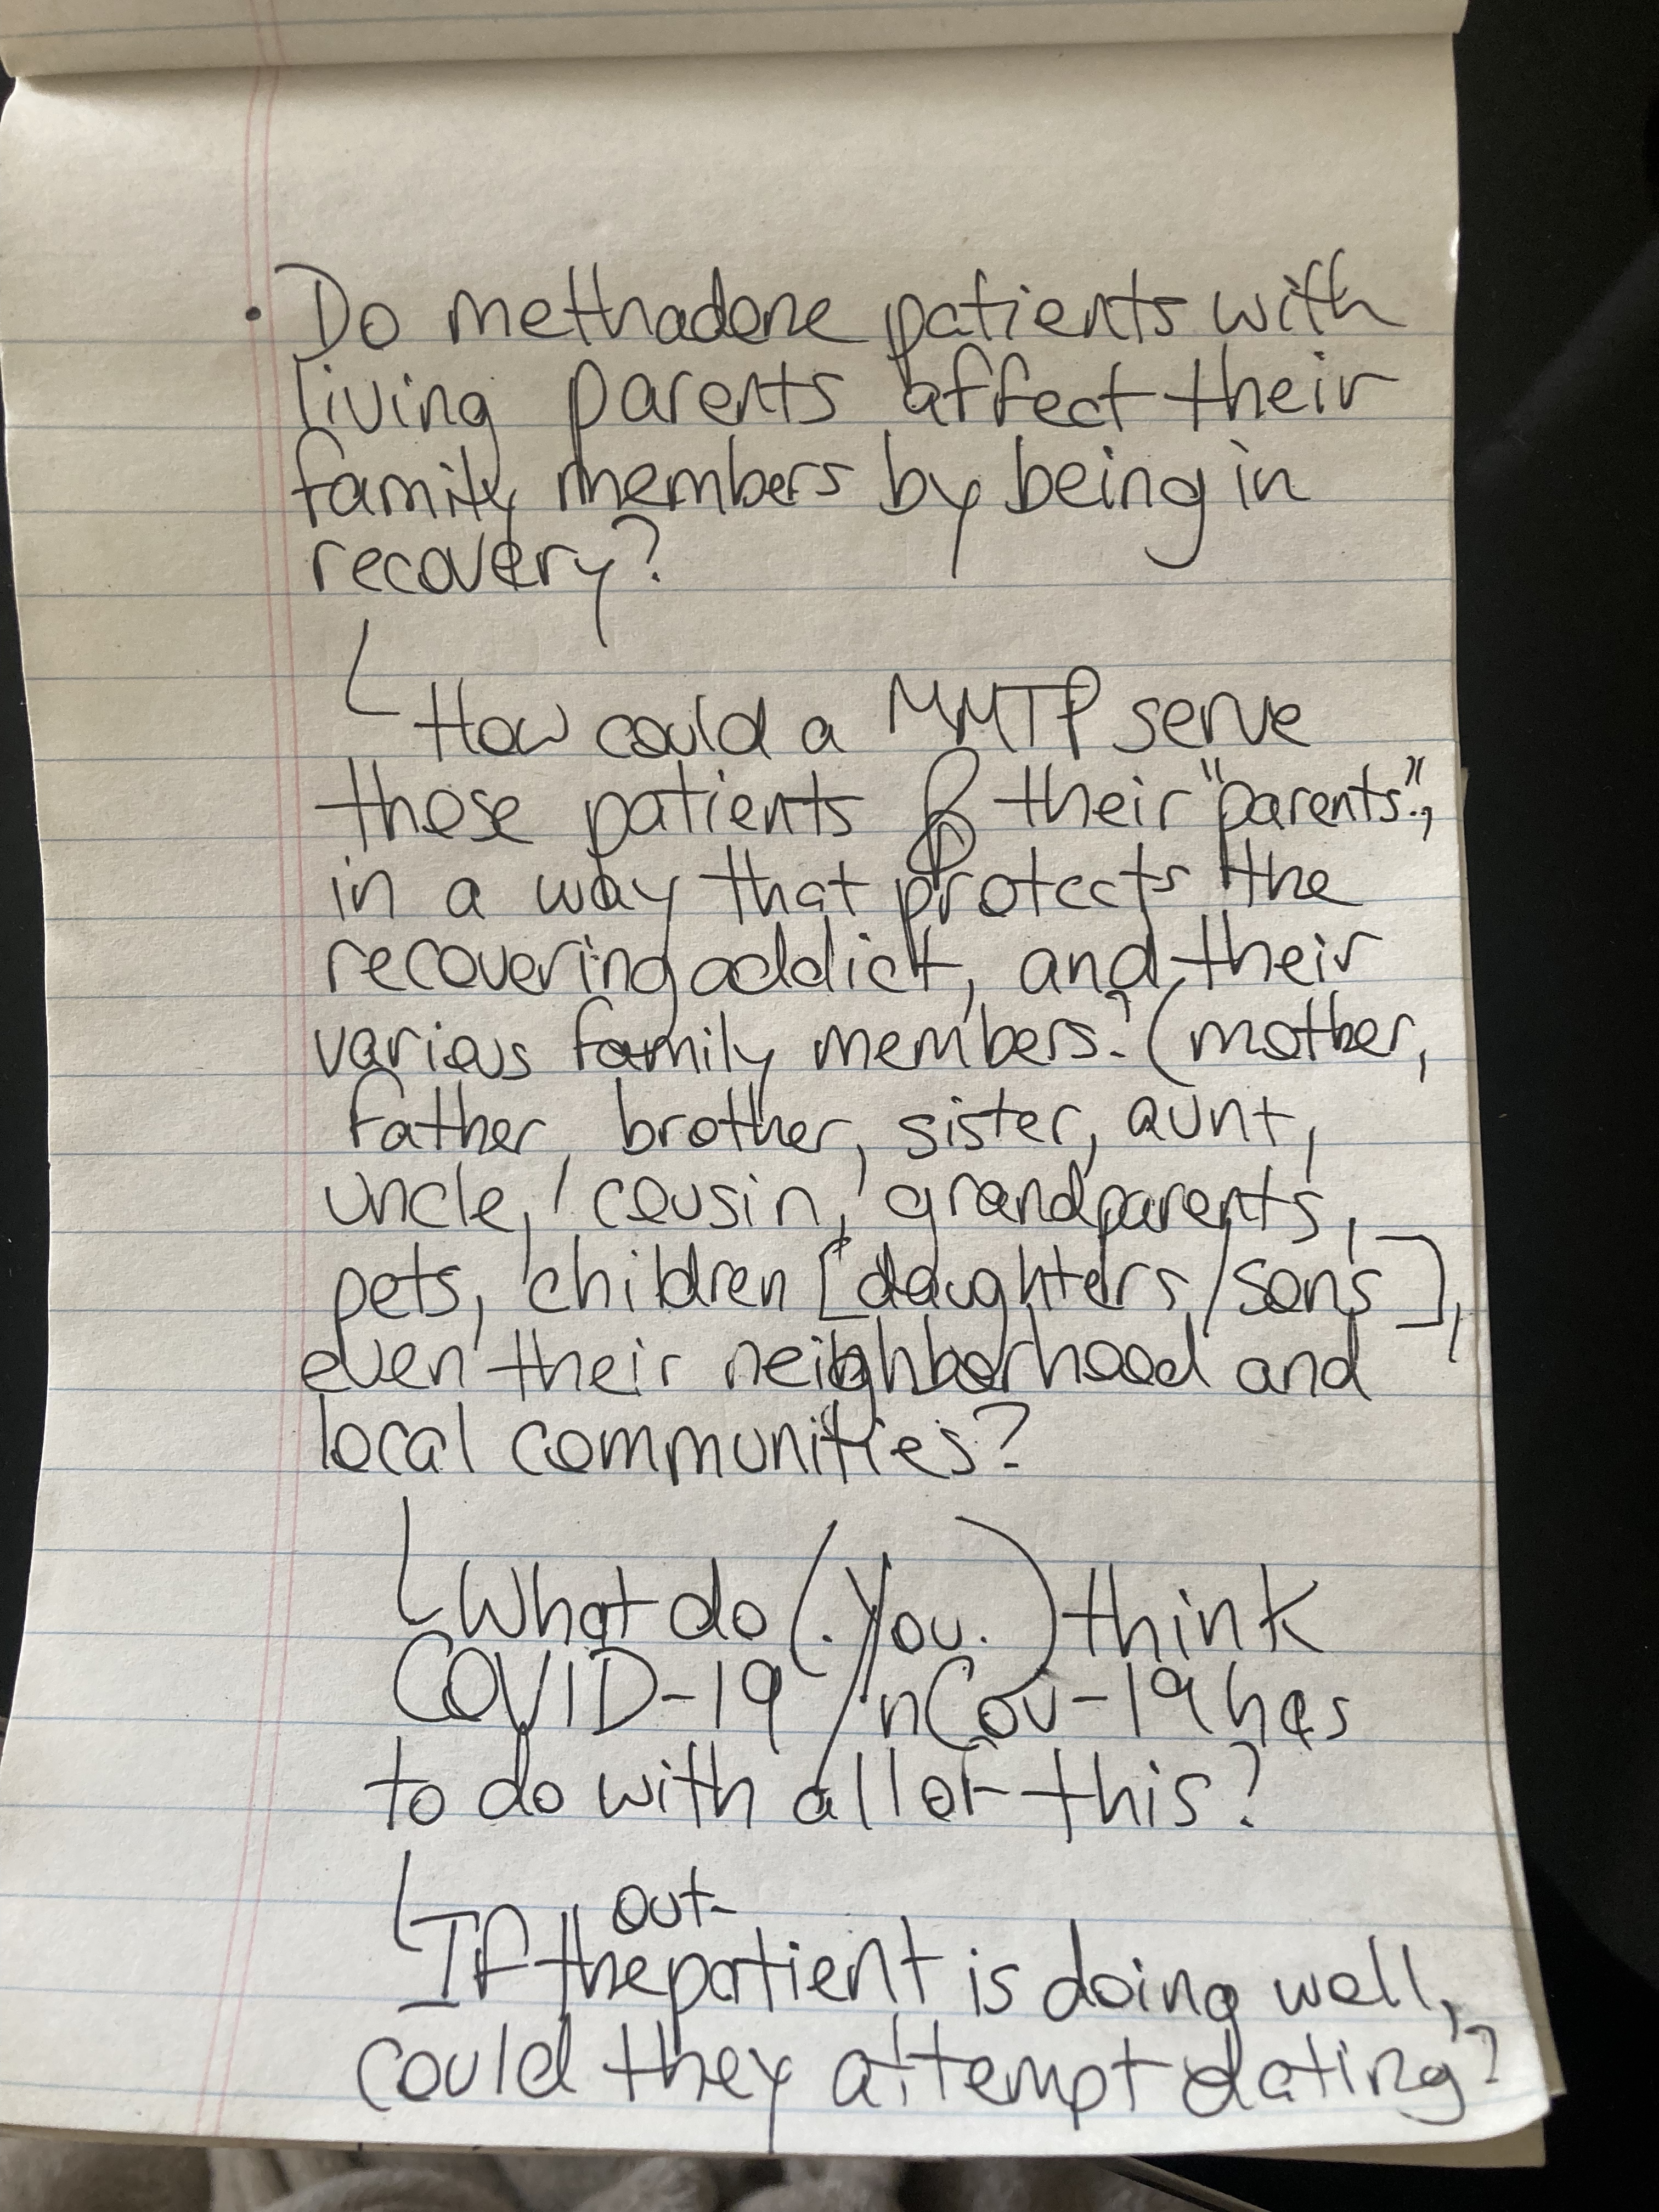 • Do methadone patients with
living parents affect their
family members by being in
recovery?
How could a MMTP serve
those patients & their "parents",
in a way that protects the
recovering addict, and their
various family members? (mother,
father, brother, sister, aunt,
uncle, cousin, grandparents,
pets, children [daughters/sons],
even their neighborhood and
local communities?
What do (.You.) think
COVID-19/nCov-19 has
to do with all of this?
out-
If the patient is doing well,
could they attempt dating?